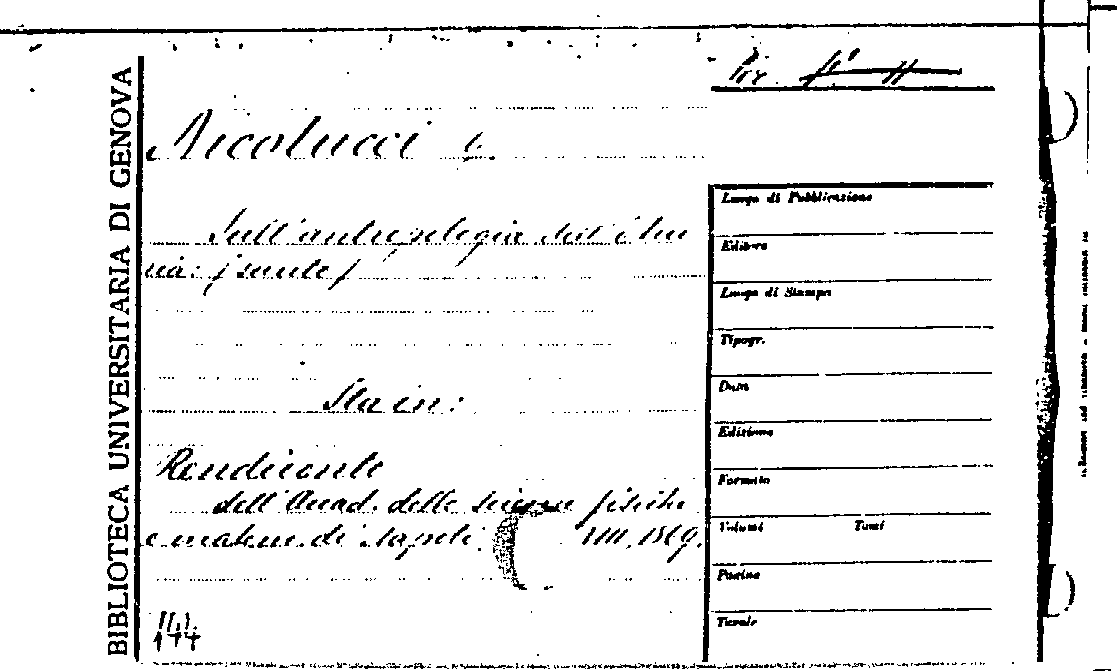 BIBLIOTECA UNIVERSITARIA DI GENOVA
Per
Nicolucci G.
Sull'antropologia dell'Etru
ria: (sunto)
Sta in:
Rendiconto
dell'Accad. delle scienze fisiche
e matem. di Napoli. VIII, 1869.
144
Luogo di Pubblicazione
Editore
Luogo di Stampa
Tipogr.
Data
Edizione
Formato
Volumi Tomi
Pagine
Tavole